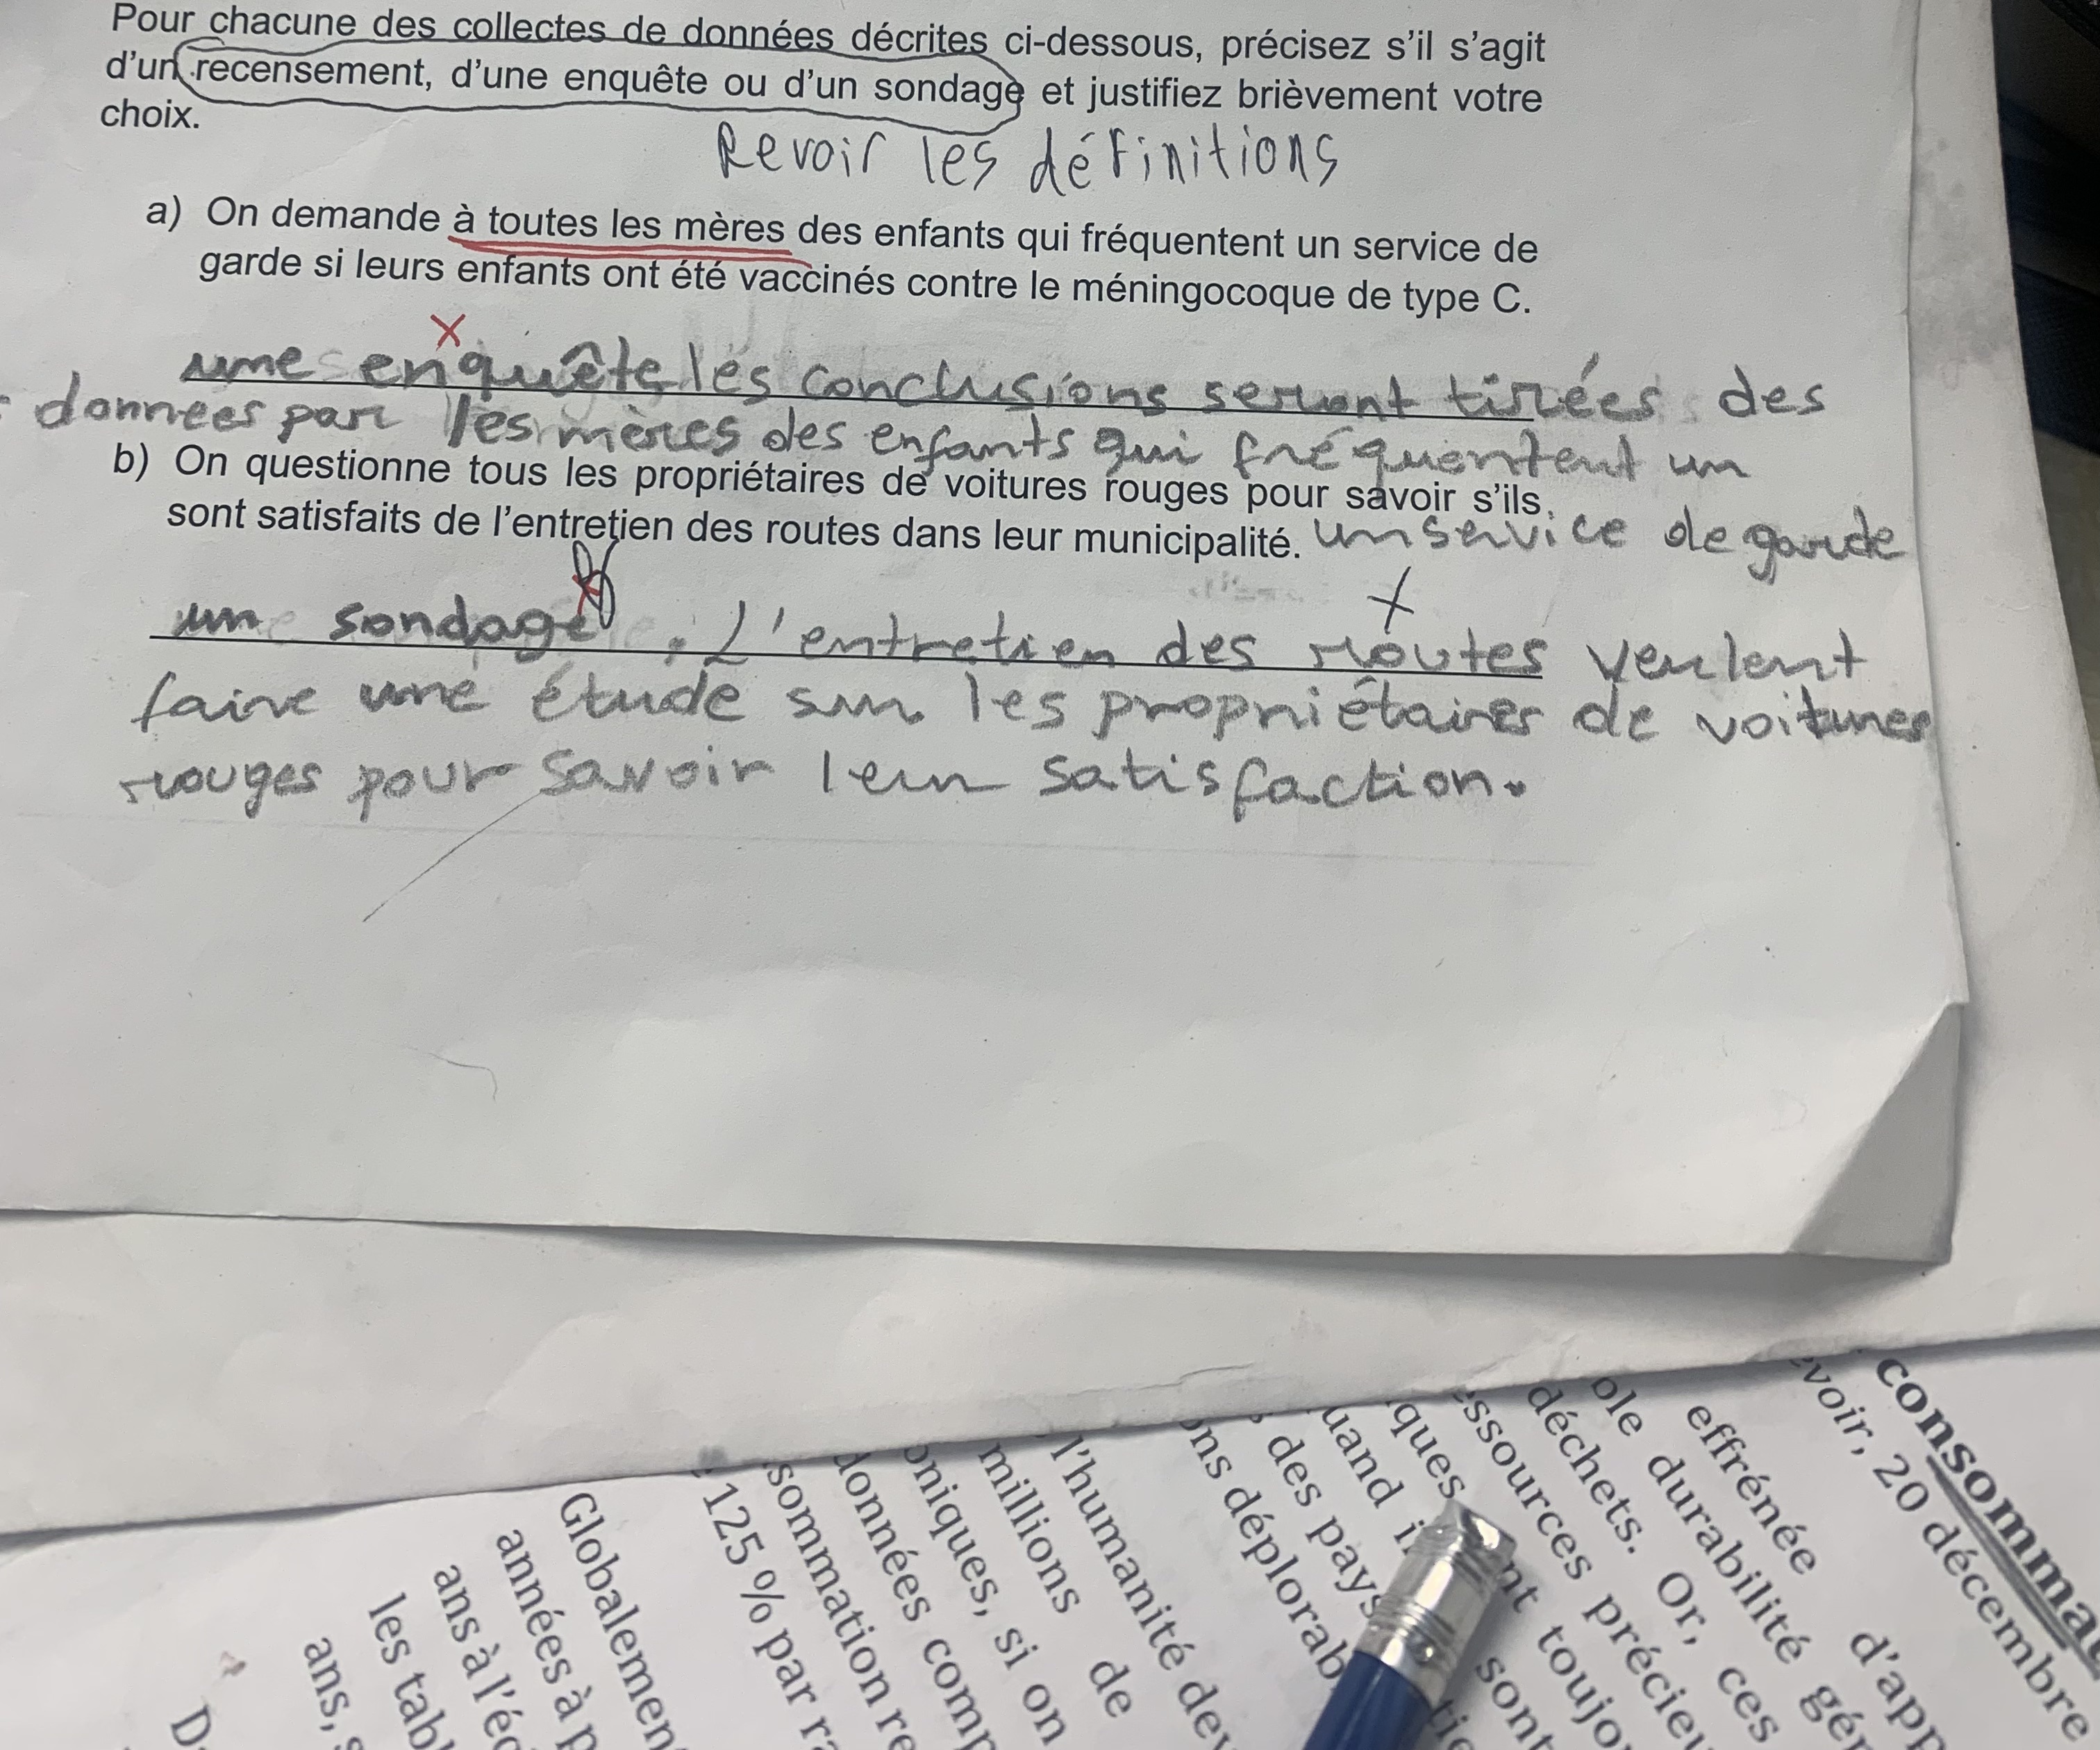 Pour chacune des collectes de données décrites ci-dessous, précisez s'il s'agit
d'un recensement, d'une enquête ou d'un sondage et justifiez brièvement votre
choix.
Revoir les définitions
a) On demande à toutes les mères des enfants qui fréquentent un service de
garde si leurs enfants ont été vaccinés contre le méningocoque de type C.
une enquête les conclusions seront tirées des
données par les mères des enfants qui fréquentent un
b) On questionne tous les propriétaires de voitures rouges pour savoir s'ils
sont satisfaits de l'entretien des routes dans leur municipalité.
un service de garde
un sondage. L'entretien des routes veulent
faire une étude sur les propriétaires de voitures
rouges pour savoir leur satisfaction.
consomma
evoir, 20 décembre
effrénée d'app
ole durabilité gén
déchets. Or, ces
essources précieu
ques toujo
uand sont
des pays
ons déplorab
l'humanité dev
millions de
oniques, si on
données comp
sommation re
125 % par ra
Globalemen
années à p
ans à l'éc
les tabl
ans, s
D